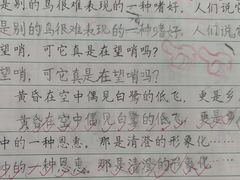 是别的鸟很难表现的一种嗜好。人们说它
是别的鸟很难表现的一种嗜好。人们说它
望哨，可它真是在望哨吗？
望哨，可它真是在望哨吗？
黄昏在空中偶见白鹭的低飞，更是乡
黄昏在空中偶见白鹭的低飞，更是乡
中的一种恩惠。那是清澄的形象化……
中的一种恩惠。那是清澄的形象化……